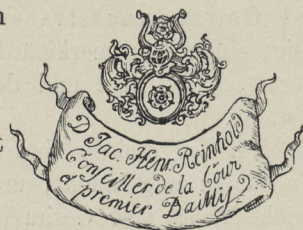 D Jac. Henr. Reinhold
Conseiller de la Cour
& premier Bailliy